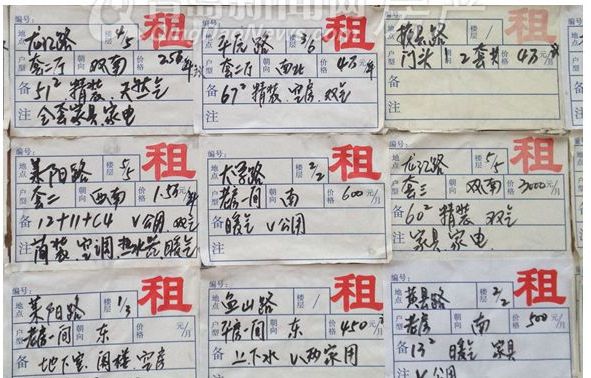 青岛新闻网 房产
编号:
租
地点 龙江路 楼层 4/5
户型 套二厅 朝向 双南 价格
备 51² 精装 天然气
注 全套家具.家电
编号:
租
地点 平原路 楼层 3/6
户型 套二厅 朝向 西北 价格 4万/年
备 67² 精装.空房.双气
注
租
地点 楼层 /
户型 门头 朝向 价格 4万
备
注
编号:
租
地点 莱阳路 楼层 5/5
户型 套二 朝向 西南 价格
备 12+11+C4 V公用 双气
注 简装.空调.热水器.暖气
编号:
租
地点 大学路 楼层 2/2
户型 老房一间 朝向 南 价格 600元/月
备 暖气 V公用
注
编号:
租
地点 龙江路 楼层 5/5
户型 套三 朝向 双南 价格 3000元/月
备 60² 精装 双气
注 家具家电
编号:
租
地点 莱阳路 楼层 1/3
户型 老房一间 朝向 东 价格 元/月
备 地下室.阁楼.空房
编号:
租
地点 鱼山路 楼层 /
户型 平房一间 朝向 东 价格 450元/月
备 上下水 V两家用
编号:
租
地点 黄县路 楼层 2/2
户型 老房 朝向 南 价格 500元/月
备 13² 暖气 家具
注 V公用